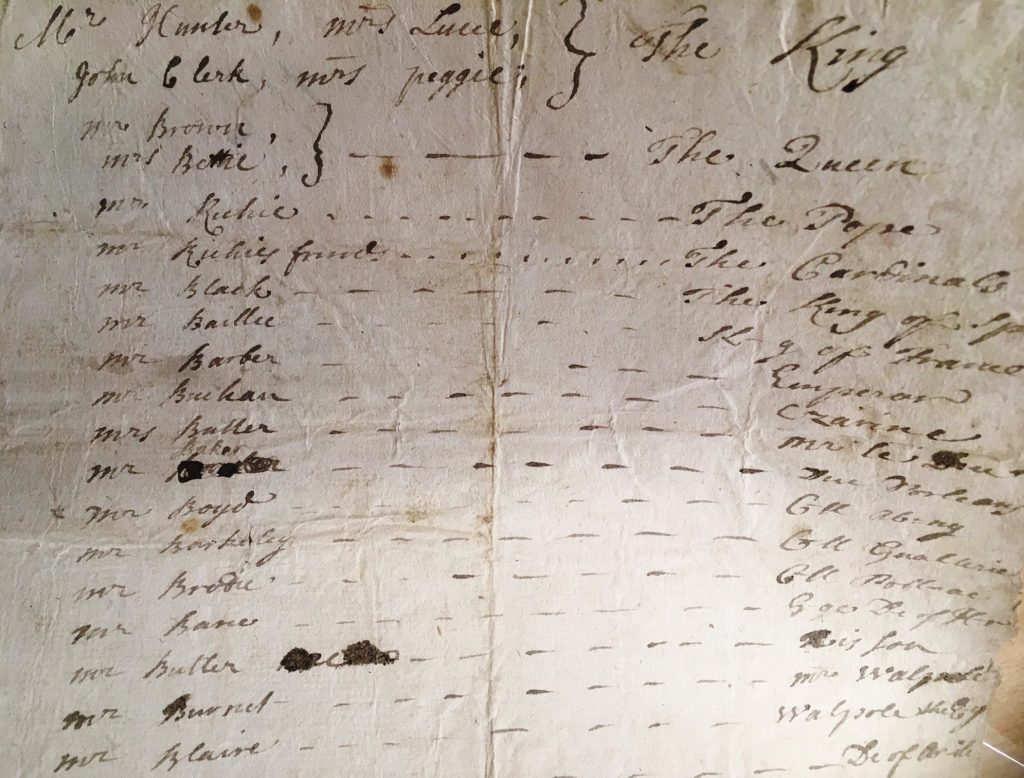 Mr Hunter, mrs Lucie, } The King
John Clerk, mrs peggie;
mr Brown, } - - - - The Queen
mrs Bettie,
mr Richie - - - - - - - The Pope
mr Richies friends - - - - - - - The Cardinals
mr Black - - - - - - The King of Sp
mr Baillie - - - - - - K-g of France
mr Barber - - - - - Emperour
mr Buchan - - - - - - - Czarine
mrs Butler - - - - - - - - mr le Duc
mr Baker - - - - - - - - Duc Dorleans
mr Boyd - - - - - - - Cll
mr Barkeley - - - - - - - Cll Gualterie
mr Brodie - - - - - - - - Cll
mr Bane - - - - - - - De of
mr Butler - - - - - - - - His son
mr Burnet - - - - - - - - mr Walpole
mr Blaire - - - - - - - - Walpole the
De of